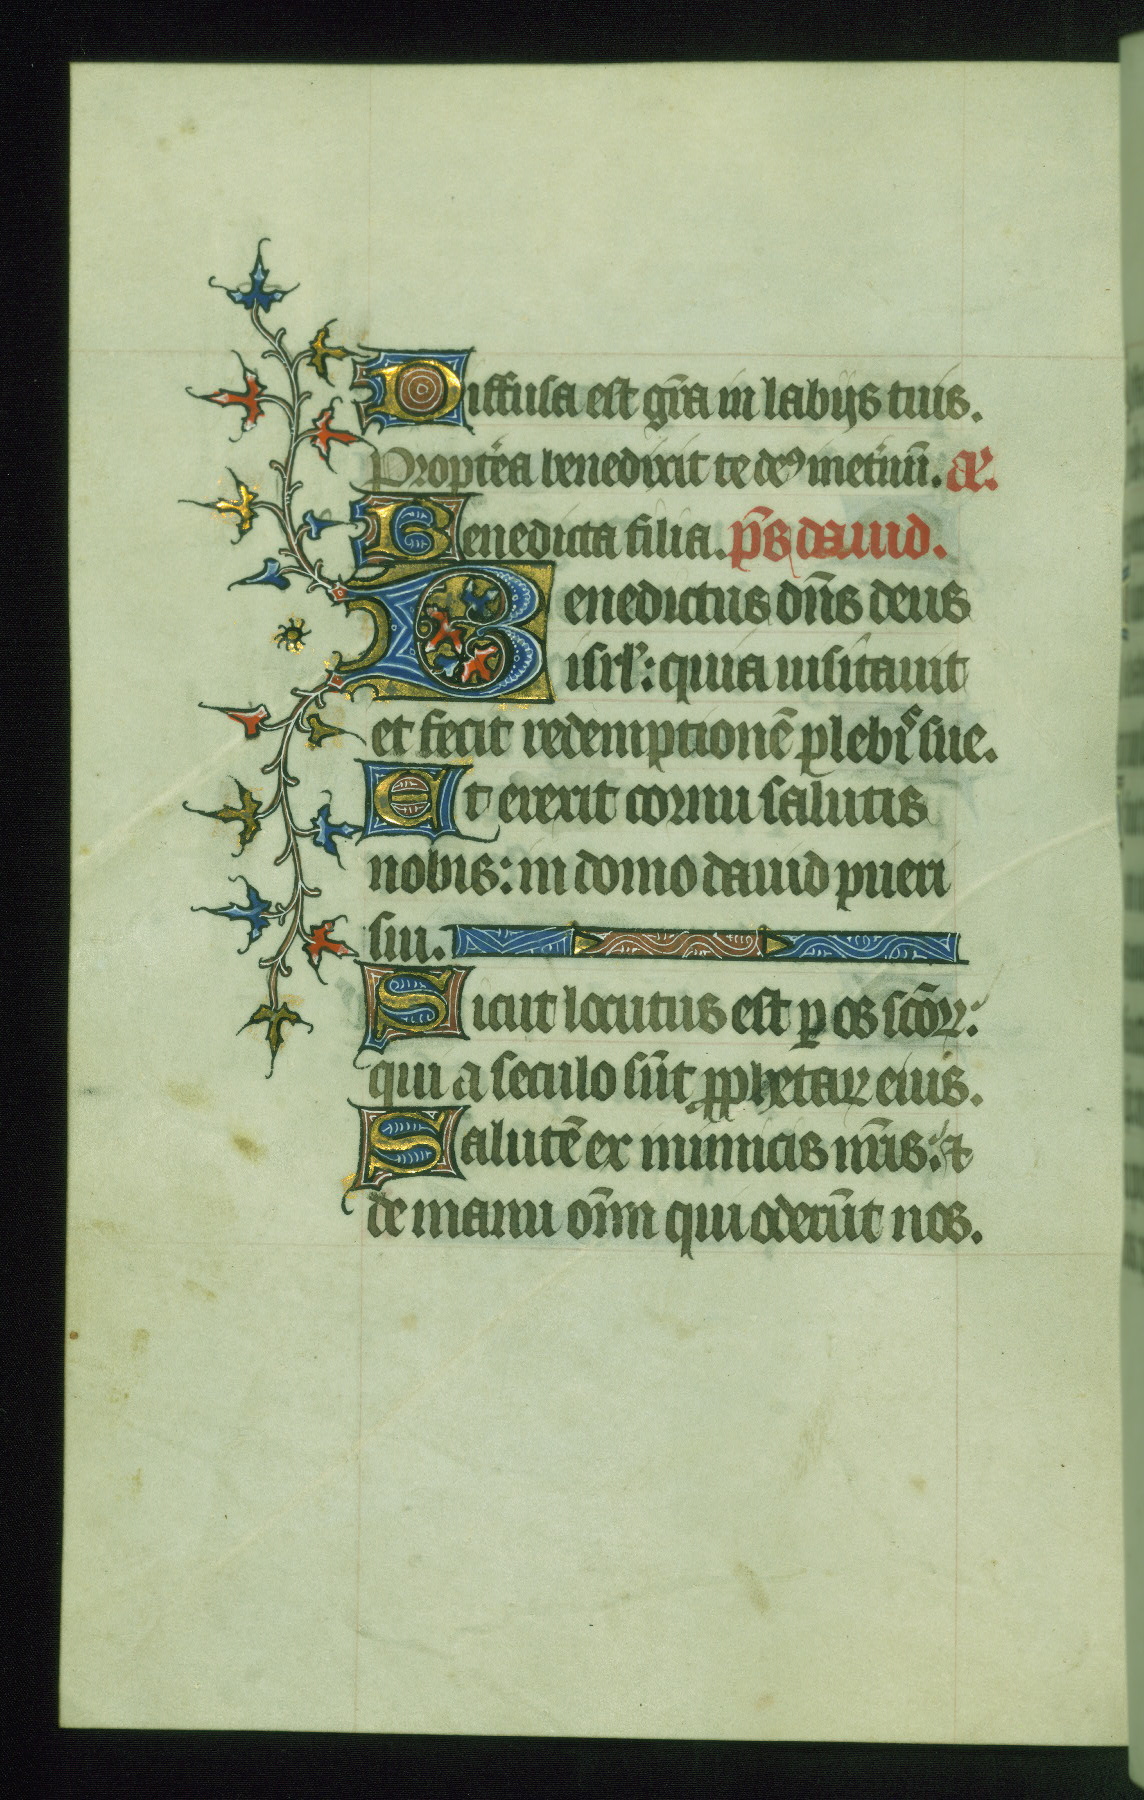 Diffusa est gr̄a in labijs tuis.
Propt̾ea benedixit te deꝰ inet̾nū. añ.
Benedicta filia. p̄s dauid.
Benedictus dn̄s deus
isrl̾: quia uisitauit
et fecit redemptionē plebis sue.
Et erexit cornu salutis
nobis: in domo dauid pueri
sui.
Sicut locutus est ꝑ os scōꝝ:
qui a seculo sūt ꝓphetaꝝ eius.
Salutē ex inimicis nr̄is: ⁊
de manu om̄m qui oderūt nos.